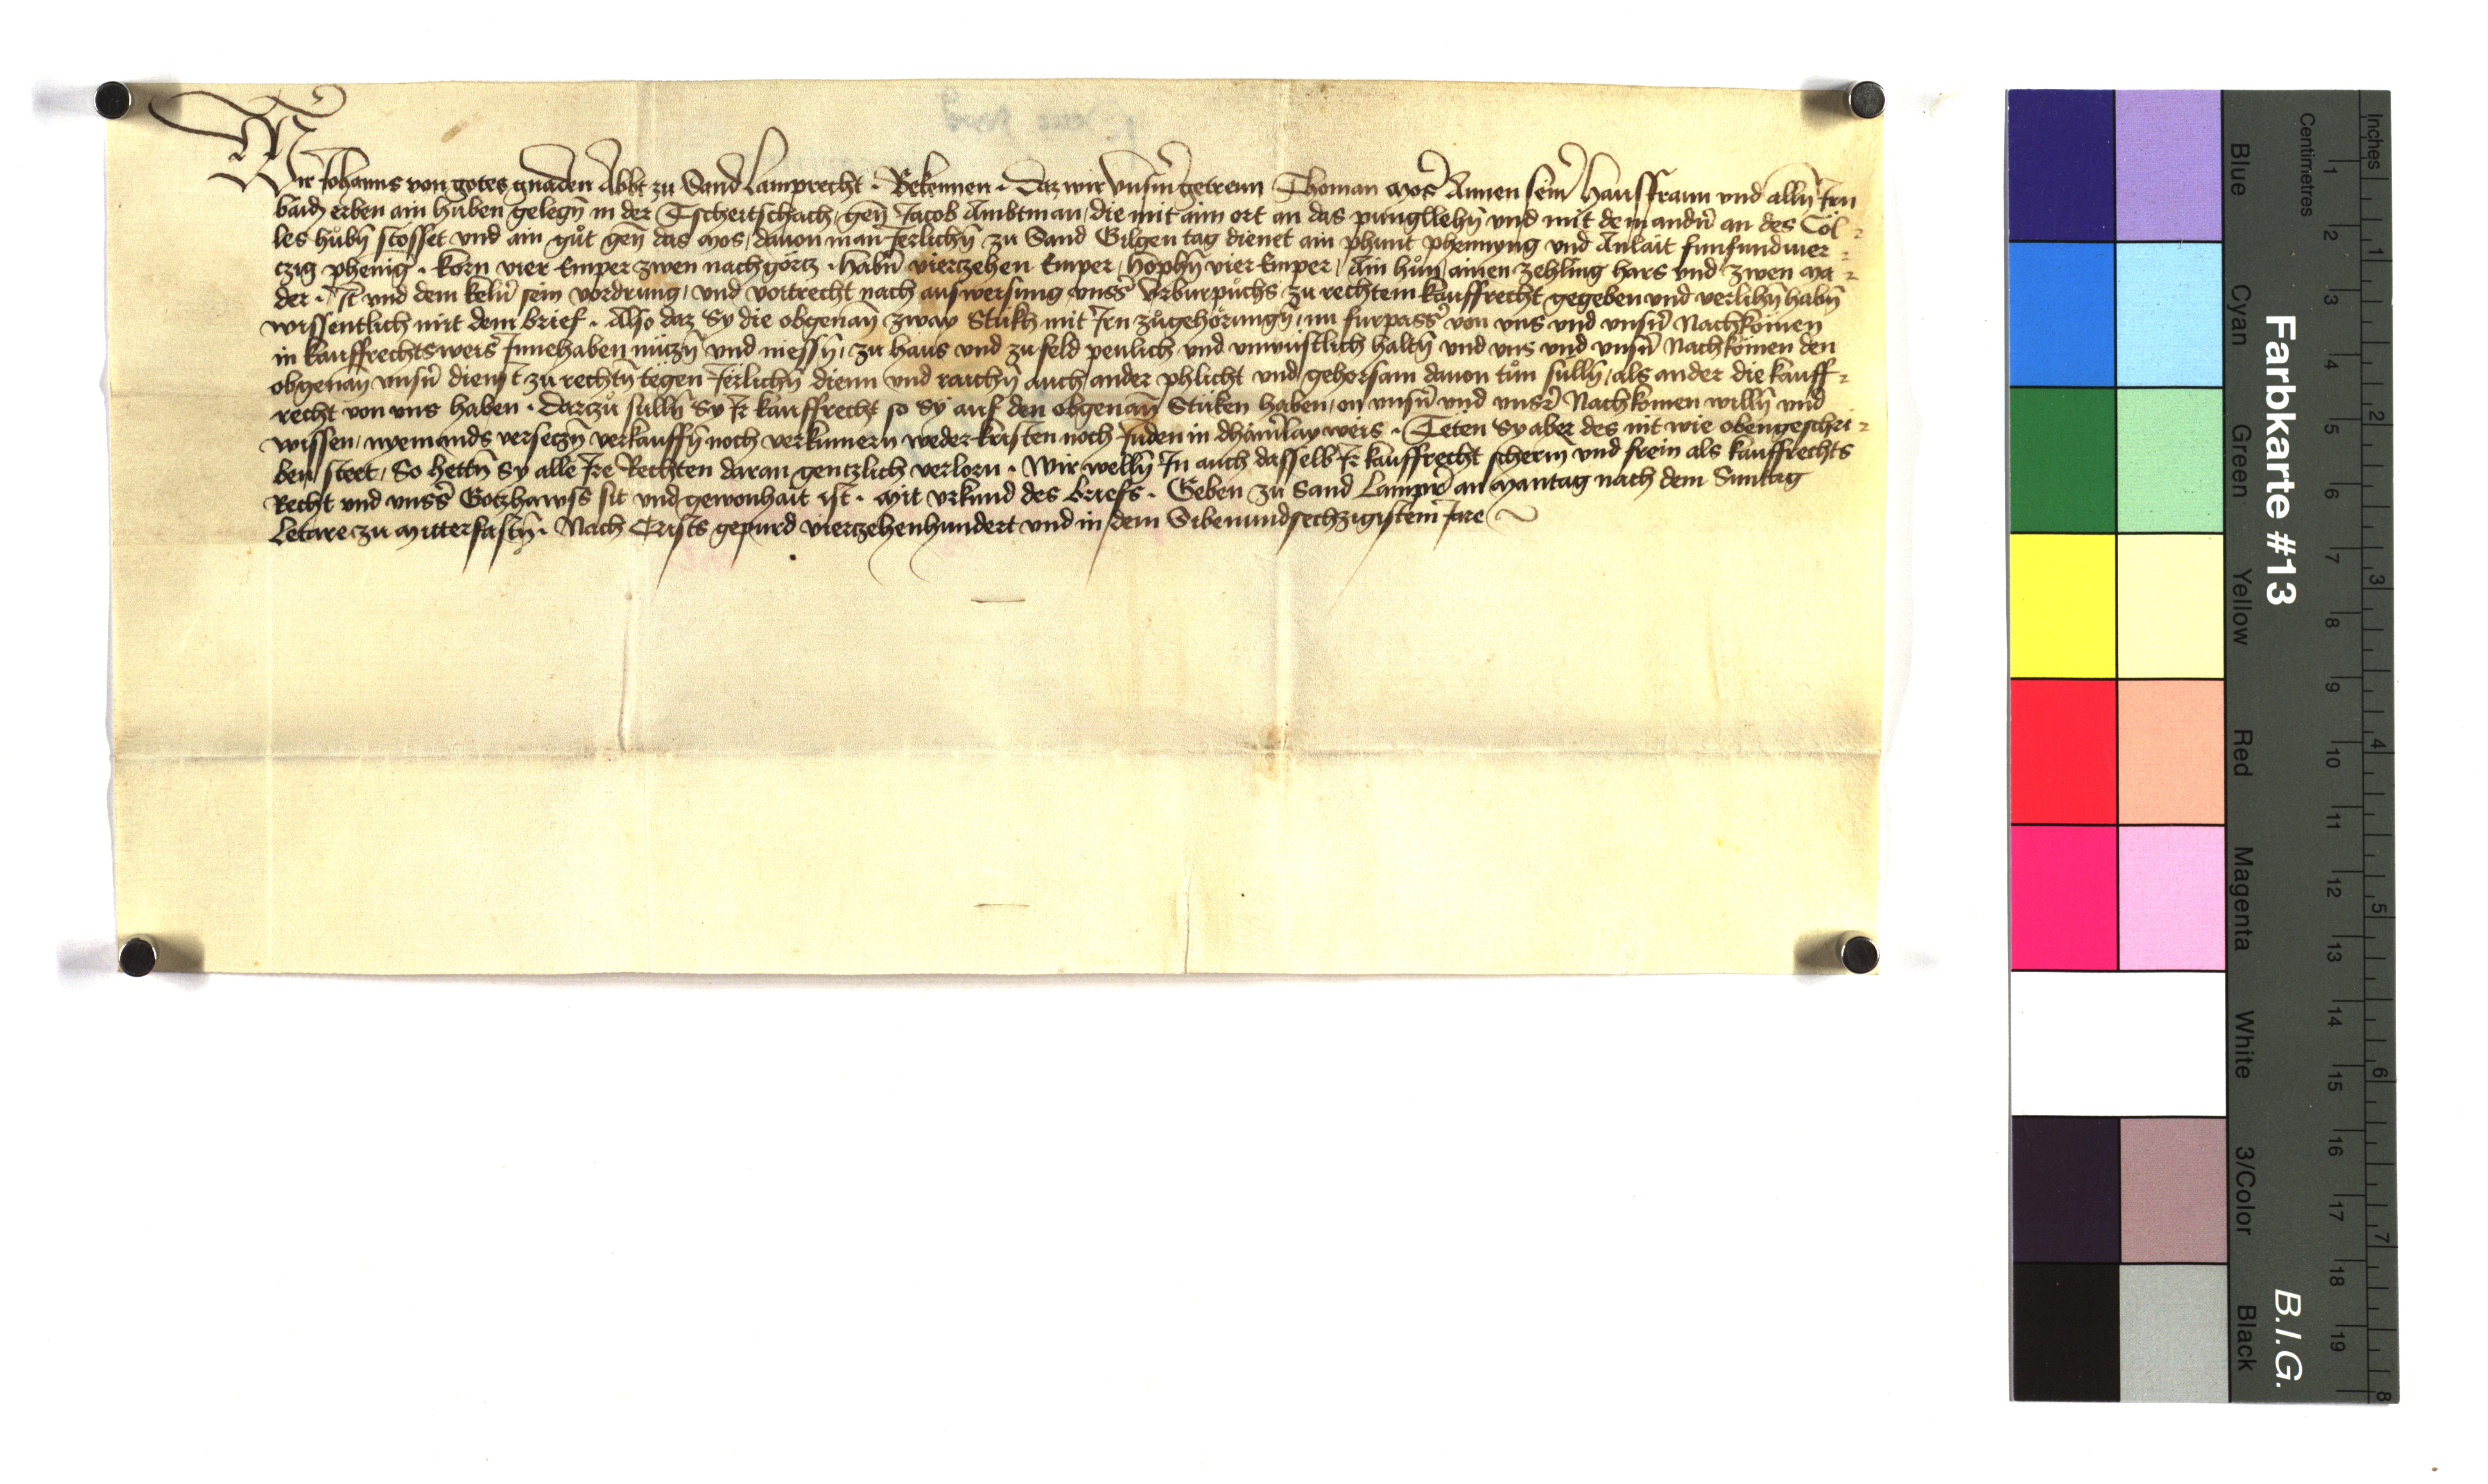 Wir Johanns von gotes gnaden Abbt zu Sand Lamprecht · Bekennen · Daz wir Unsm̄ getrewn Thoman Mos̄ Annen sein̄ Hausfrawn und alln̄ Irn
baid erben ain huben gelegn̄ in der Tscheitschach / gen̄ Jacob Ambtman / die mit aim ort an das pungllehn̄ und mit dem andn̄ an des Töl =
les hůbn̄ stosset und ain gůt gen̄ das Mos / dauon man Jerlichn̄ zu Sand Gilgen tag dienet ain phunt phennyng und Anlait funfundvier =
czig phenig · korn vier Emper zwen nachgörcz · habn̄ vierczehen Emper / hophn̄ vier Emper / Ain hůn / ainen zehling hars und zwen ma =
der · It̄ und dem keln̄ sein vordrung / und voitrecht nach auswersung unss̄ Urburpůchs zu rechtem kauffrecht gegeben und verlihn̄ habn̄
wissentlich mit dem brief · Also daz Sy die obgenan̄ zway Stukh mit Irn zůgehörungn̄ / nu furpass̄ von uns und unsn̄ Nachkömen
in kauffrechtsweis Innehaben nüczn̄ und niessn̄ / zu haus und zu feld peulich und unwüstlich haltn̄ und uns und unsn̄ Nachkömen den
obgenan̄ unsn̄ dienst zu rechtn̄ tëgen Jerlichn̄ dienn und raichn̄ auch ander phlicht und gehorsam dauon tůn sulln̄ / als ander die kauff =
recht von uns haben · Darczů sulln̄ Sy Ir kauffrecht so Sy auf den obgenan̄ Stuken haben / on unsn̄ und unsr̄ Nachkomen willn̄ und
wissen / nyemands verseczn̄ verkauffn̄ noch verkumern weder kristen noch Juden in dhain̄lay weis · Teten Sy aber des nit wie obengeschri =
ben steet / So hettn̄ Sy alle Ire Rechten daran genczlich verlorn · Wir welln̄ In auch dasselb Ir kauffrecht scherm̄ und frein als kauffrechts
Recht und unss̄ Gotzhawss sit und gewonhait ist · Mit urkund des briefs · Geben zu Sand Lampr̄ an Mantag nach dem Suntag
Letare zu Mitterfastn̄ · Nach Crists gepurd vierczehenhundert und in dem Sibenundsechzigistem Jare
Farbkarte #13
B.I.G.
Centimetres
Inches
Blue
Cyan
Green
Yellow
Red
Magenta
White
3/Color
Black
1 2 3 4 5 6 7 8 9 10 11 12 13 14 15 16 17 18 19
1 2 3 4 5 6 7 8